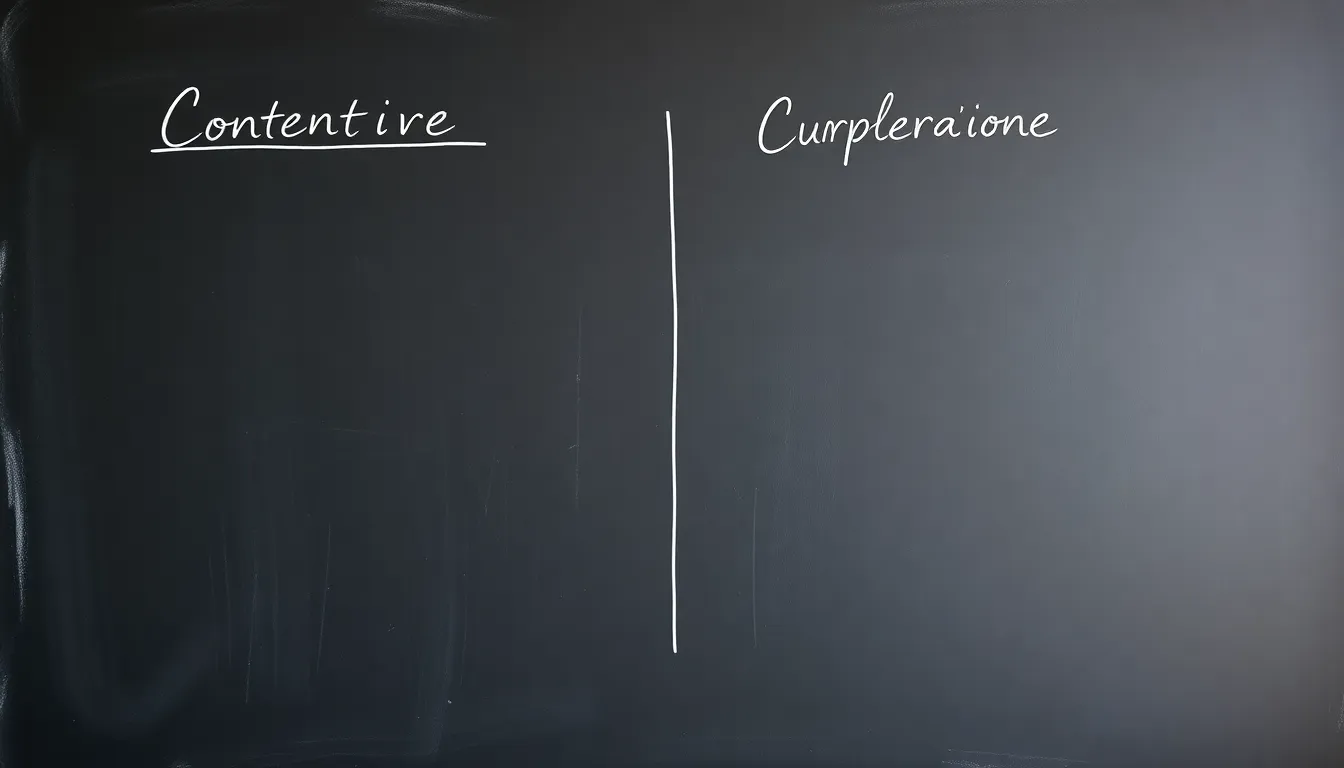 Contentive
Curplera'ione